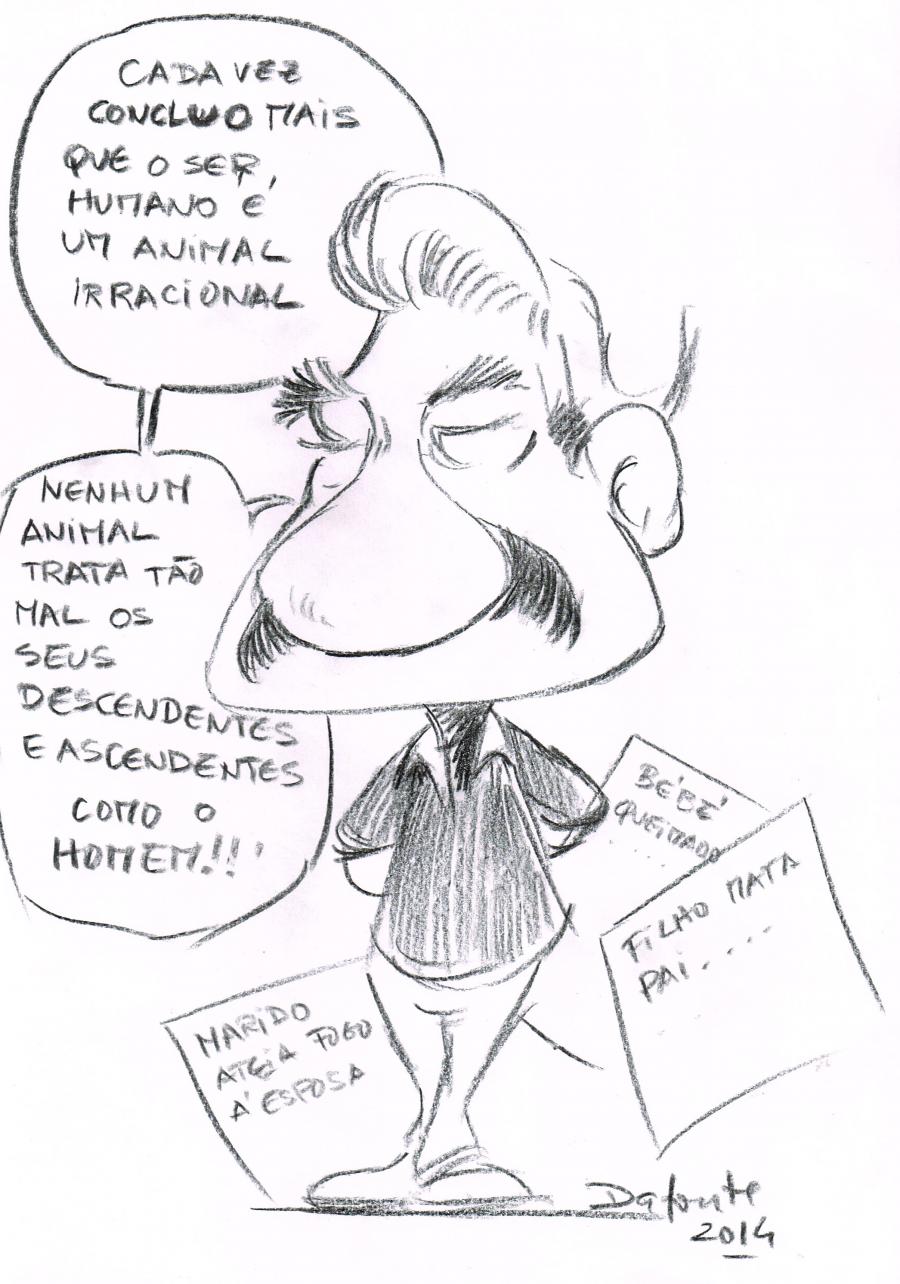 CADA VEZ
CONCLUO MAIS
QUE O SER,
HUMANO É
UM ANIMAL
IRRACIONAL
NENHUM
ANIMAL
TRATA TÃO
MAL OS
SEUS
DESCENDENTES
E ASCENDENTES
COMO O
HOMEM!!!
BÉBÉ
QUEIMADO
.....
FILHO MATA
PAI....
MARIDO
ATEIA FOGO
Á ESPOSA
Dafonte
2014